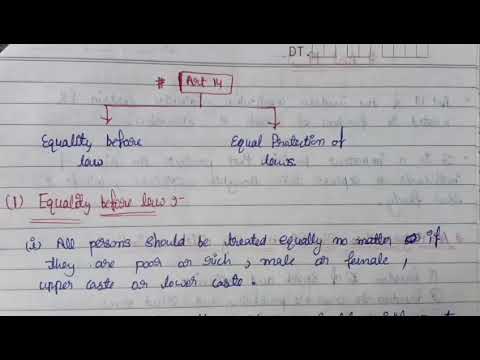 DT.
# Art 14
Equality before
law
Equal Protection of
laws
(1) Equality before law :-
(i) All persons should be treated equally no matter if
they are poor or rich, male or female,
upper caste or lower caste.